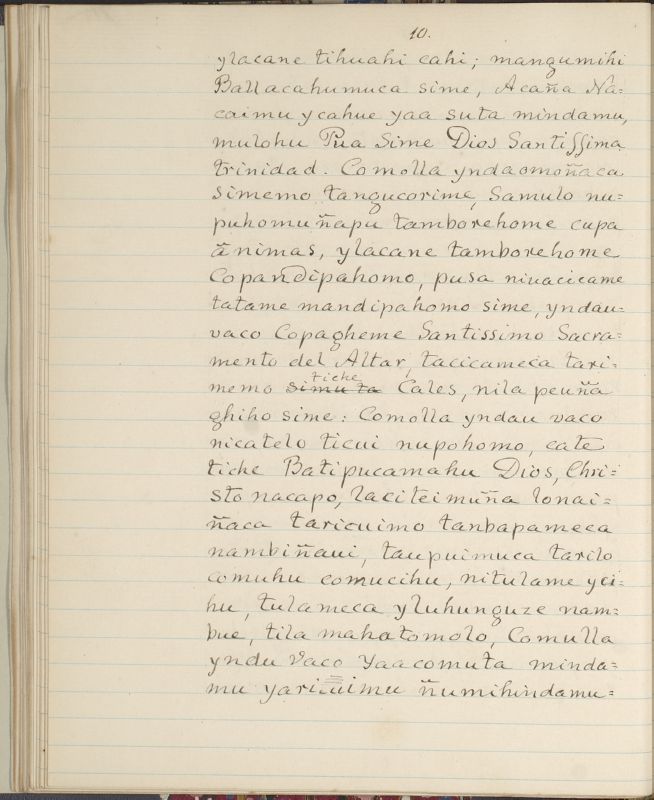 10.
ylacane tihuahi cahi; mangumihi
Ballacahumuca sime, Acaña Na=
caimu ycahue yaa suta mindamu,
mulohu Pua Sime Dios Santissima
trinidad. Comolla yndaomoñaca
Simemo tangucorime, Samulo nu=
puhomuñapu tamborehome cupa
ãnimas, ylacane tamborehome
Copandipahomo, pusa niuacicame
tatame mandipahomo sime, yndau=
vaco Copagheme Santissimo Sacra=
mento del Altar, tacicameca tari=
memo simuta tiche Cales, nila peuña
ghiho sime: Comolla yndau vaco
nicatelo ticui nupohomo, cate
tiche Batipucamahu Dios, Chri=
sto nacapo, laciteimuña lonai=
ñaca taricuimo tanbapameca
nambiñaui, taupuimuca tarilo
comuhu comucihu, nitulame yci=
hu, tulameca yluhunguze nam=
bue, tila mahatomolo, Comulla
yndu Vaco Yaacomuta minda=
mu yaricuimu ñumihindamu=